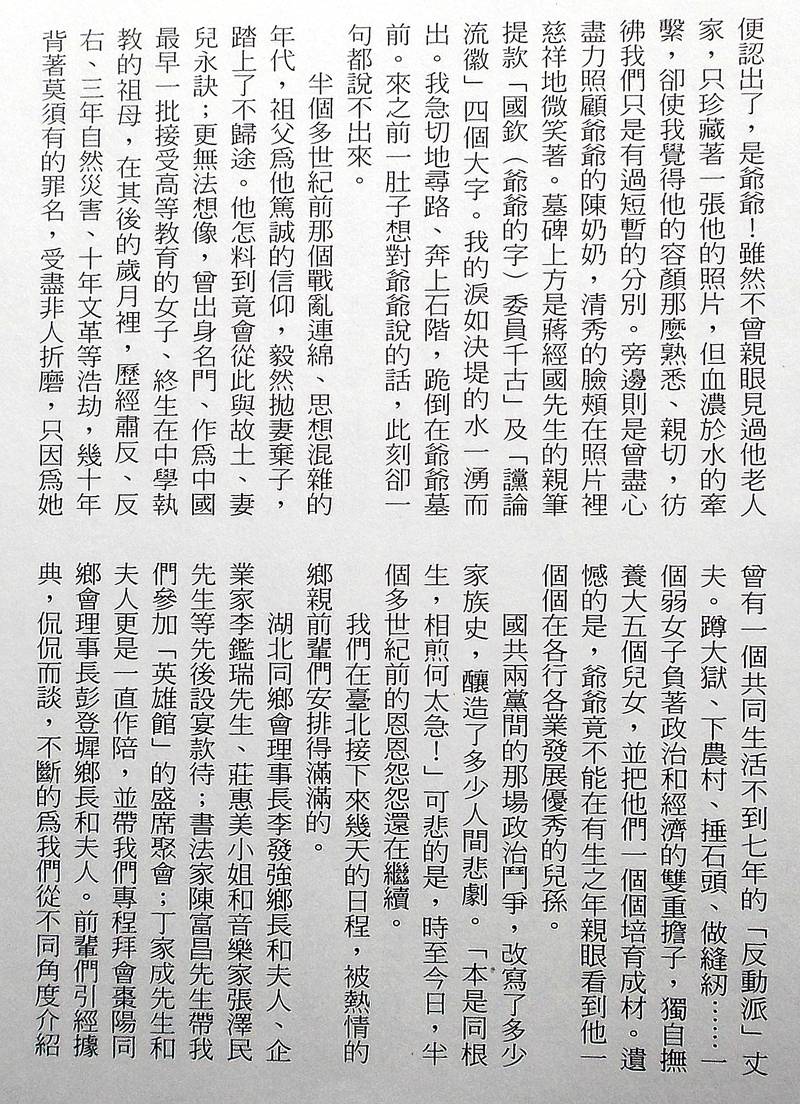 便認出了，是爺爺！雖然不曾親眼見過他老人
家，只珍藏著一張他的照片，但血濃於水的牽
繫，卻使我覺得他的容顏那麼熟悉、親切，彷
彿我們只是有過短暫的分別。旁邊則是曾盡心
盡力照顧爺爺的陳奶奶，清秀的臉頰在照片裡
慈祥地微笑著。墓碑上方是蔣經國先生的親筆
提款「國欽（爺爺的字）委員千古」及「讜論
流徽」四個大字。我的淚如決堤的水一湧而
出。我急切地尋路、奔上石階，跪倒在爺爺墓
前。來之前一肚子想對爺爺說的話，此刻卻一
句都說不出來。
半個多世紀前那個戰亂連綿、思想混雜的
年代，祖父爲他篤誠的信仰，毅然拋妻棄子，
踏上了不歸途。他怎料到竟會從此與故土、妻
兒永訣；更無法想像，曾出身名門、作爲中國
最早一批接受高等教育的女子、終生在中學執
教的祖母，在其後的歲月裡，歷經肅反、反
右、三年自然災害、十年文革等浩劫，幾十年
背著莫須有的罪名，受盡非人折磨，只因爲她
曾有一個共同生活不到七年的「反動派」丈
夫。蹲大獄、下農村、捶石頭、做縫紉……一
個弱女子負著政治和經濟的雙重擔子，獨自撫
養大五個兒女，並把他們一個個培育成材。遺
憾的是，爺爺竟不能在有生之年親眼看到他一
個個在各行各業發展優秀的兒孫。
國共兩黨間的那場政治鬥爭，改寫了多少
家族史，釀造了多少人間悲劇。「本是同根
生，相煎何太急！」可悲的是，時至今日，半
個多世紀前的恩恩怨怨還在繼續。
我們在臺北接下來幾天的日程，被熱情的
鄉親前輩們安排得滿滿的。
湖北同鄉會理事長李發強鄉長和夫人、企
業家李鑑瑞先生、莊惠美小姐和音樂家張澤民
先生等先後設宴款待；書法家陳富昌先生帶我
們參加「英雄館」的盛席聚會；丁家成先生和
夫人更是一直作陪，並帶我們專程拜會棗陽同
鄉會理事長彭登墀鄉長和夫人。前輩們引經據
典，侃侃而談，不斷的爲我們從不同角度介紹